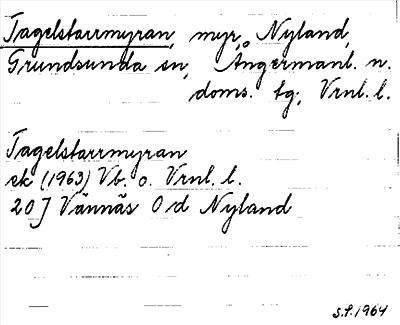 Tagelstarrmyran, myr, Nyland,
Grundsunda sn, Ångermanl. n.
doms. tg, Vrnl. l.
Tagelstarrmyran
ek (1963) Vb. o. Vrnl. l.
20 J Vännäs 0 d Nyland
S.S. 1964